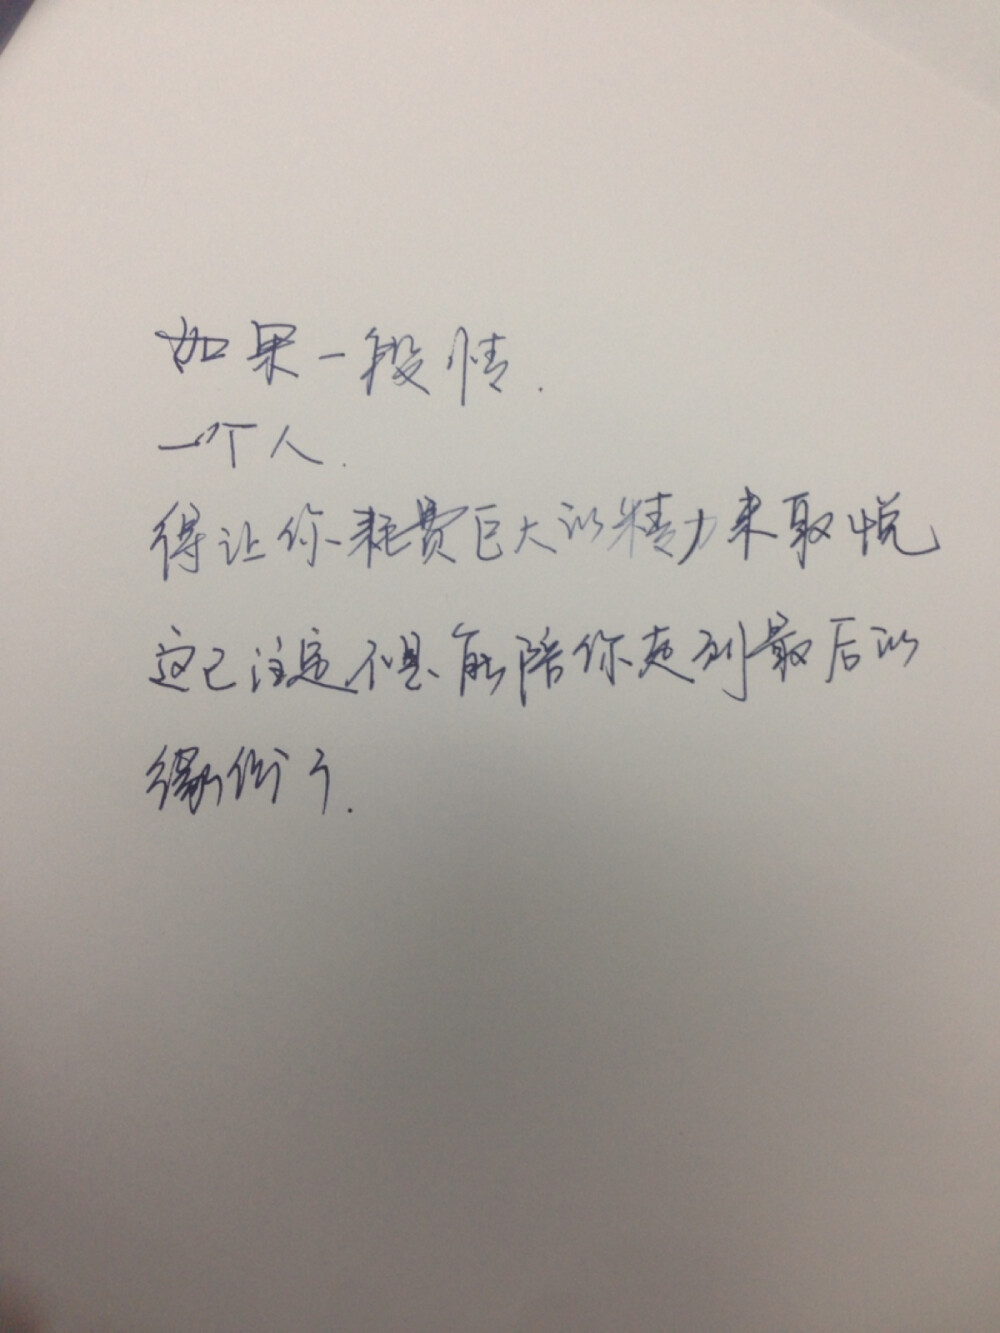 如果一段情.
一个人.
得让你耗费巨大的精力来取悦
这已注定不是能陪你走到最后的
缘份了.